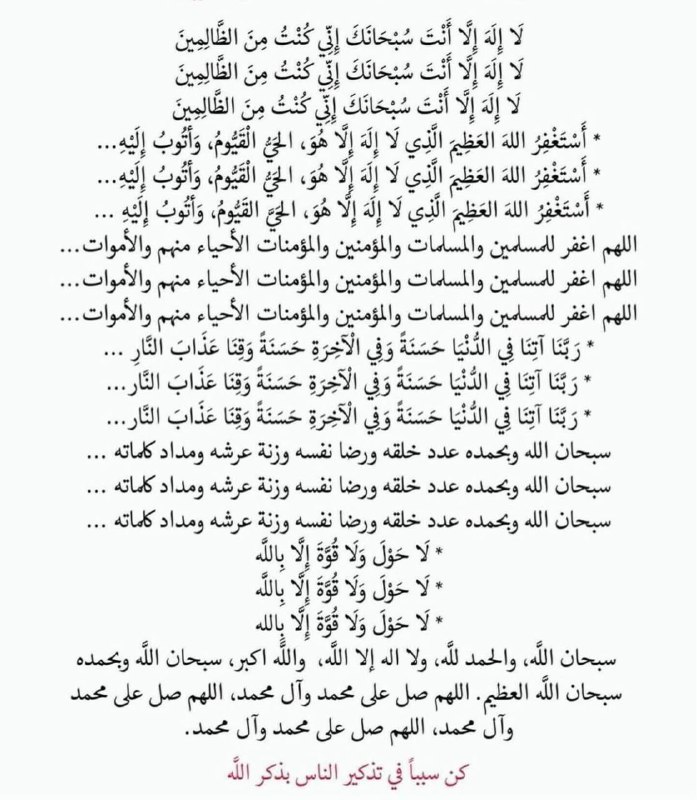 لَا إِلَهَ إِلَّا أَنْتَ سُبْحَانَكَ إِنِّي كُنْتُ مِنَ الظَّالِمِينَ
لَا إِلَهَ إِلَّا أَنْتَ سُبْحَانَكَ إِنِّي كُنْتُ مِنَ الظَّالِمِينَ
لَا إِلَهَ إِلَّا أَنْتَ سُبْحَانَكَ إِنِّي كُنْتُ مِنَ الظَّالِمِينَ
* أَسْتَغْفِرُ اللهَ العَظِيمَ الَّذِي لَا إِلَهَ إِلَّا هُوَ، الحَيُّ الْقَيُّومُ، وَأَتُوبُ إِلَيْهِ...
* أَسْتَغْفِرُ اللهَ العَظِيمَ الَّذِي لَا إِلَهَ إِلَّا هُوَ، الحَيُّ الْقَيُّومُ، وَأَتُوبُ إِلَيْهِ...
* أَسْتَغْفِرُ اللهَ العَظِيمَ الَّذِي لَا إِلَهَ إِلَّا هُوَ، الحَيَّ القَيُّومُ، وَأَتُوبُ إِلَيْهِ ...
اللهم اغفر للمسلمين والمسلمات والمؤمنين والمؤمنات الأحياء منهم والأموات...
اللهم اغفر للمسلمين والمسلمات والمؤمنين والمؤمنات الأحياء منهم والأموات...
اللهم اغفر للمسلمين والمسلمات والمؤمنين والمؤمنات الأحياء منهم والأموات...
* رَبَّنَا آتِنَا فِي الدُّنْيَا حَسَنَةً وَفِي الْآخِرَةِ حَسَنَةً وَقِنَا عَذَابَ النَّارِ ...
* رَبَّنَا آتِنَا فِي الدُّنْيَا حَسَنَةً وَفِي الْآخِرَةِ حَسَنَةً وَقِنَا عَذَابَ النَّار...
* رَبَّنَا آتِنَا فِي الدُّنْيَا حَسَنَةً وَفِي الْآخِرَةِ حَسَنَةً وَقِنَا عَذَابَ النَّار...
سبحان الله وبحمده عدد خلقه ورضا نفسه وزنة عرشه ومداد كلماته ...
سبحان الله وبحمده عدد خلقه ورضا نفسه وزنة عرشه ومداد كلماته ...
سبحان الله وبحمده عدد خلقه ورضا نفسه وزنة عرشه ومداد كلماته ...
* لَا حَوْلَ وَلَا قُوَّةَ إِلَّا بِاللَّه
* لَا حَوْلَ وَلَا قُوَّةَ إِلَّا بِاللَّه
* لَا حَوْلَ وَلَا قُوَّةَ إِلَّا بِالله
سبحان اللَّه، والحمد للَّه، ولا اله إلا اللَّه، واللَّه اكبر، سبحان اللَّه وبحمده
سبحان اللَّه العظيم. اللهم صل على محمد وآل محمد، اللهم صل على محمد
وآل محمد، اللهم صل على محمد وآل محمد.
كن سبباً في تذكير الناس بذكر اللَّه